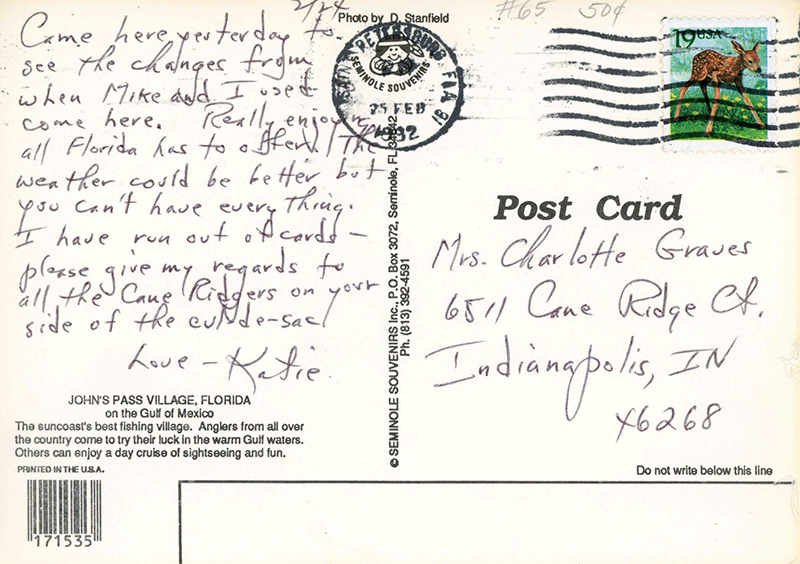 2/24
Came here yesterday to
see the changes from
when Mike and I used
come here. Really enjoying
all Florida has to offer! The
weather could be better but
you can't have everything.
I have run out of cards –
please give my regards to
all the Cane Ridgers on your
side of the cul-de-sac
Love – Katie
JOHN'S PASS VILLAGE, FLORIDA
on the Gulf of Mexico
The suncoast's best fishing village. Anglers from all over
the country come to try their luck in the warm Gulf waters.
Others can enjoy a day cruise of sightseeing and fun.
PRINTED IN THE U.S.A.
171535
Photo by D. Stanfield
SEMINOLE SOUVENIRS
SAINT PETERSBURG FLA
25 FEB
1992
© SEMINOLE SOUVENIRS Inc., P.O. Box 3072, Seminole, FL 34642
Ph. (813) 392-4591
#65 50¢
19 USA
Post Card
Mrs. Charlotte Graves
6511 Cane Ridge Ct.
Indianapolis, IN
46268
Do not write below this line